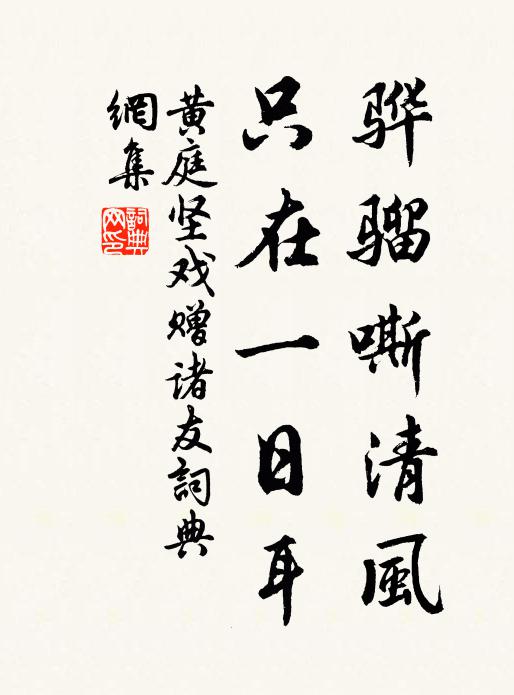 骅骝嘶清風
只在一日耳
黄庭坚戏赠诸友詞典
網集
詞典
网印